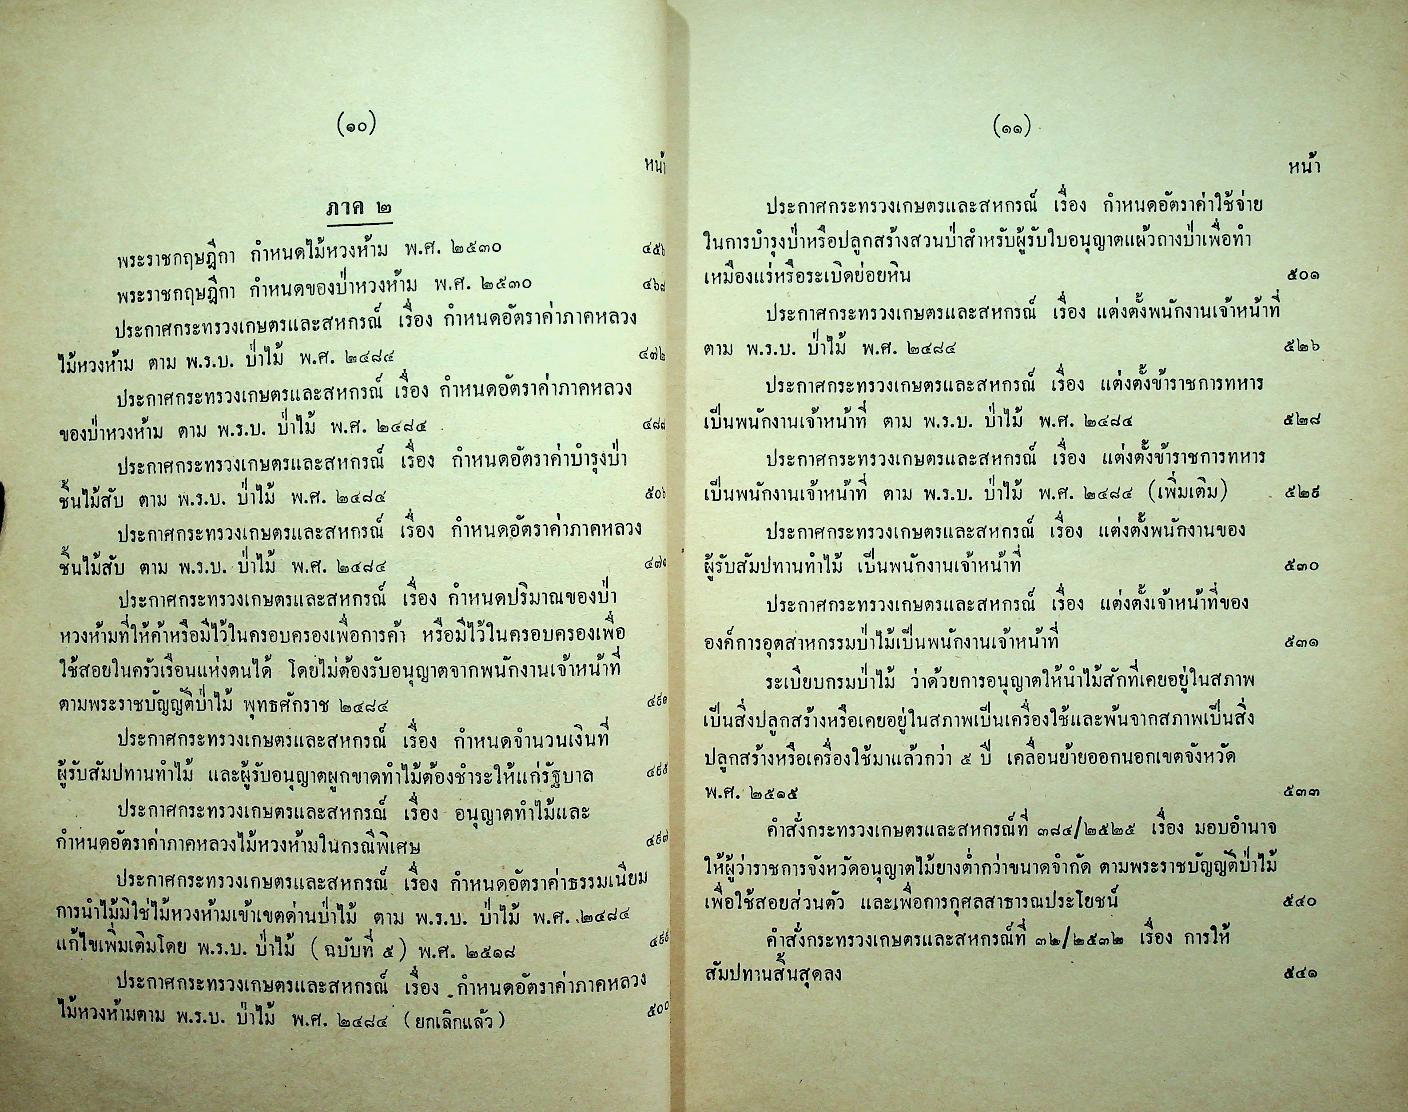 (๑๐)
หน้า
ภาค ๒
พระราชกฤษฎีกา กำหนดไม้หวงห้าม พ.ศ. ๒๕๓๐ ๔๕๖
พระราชกฤษฎีกา กำหนดของป่าหวงห้าม พ.ศ. ๒๕๓๐
ประกาศกระทรวงเกษตรและสหกรณ์ เรื่อง กำหนดอัตราค่าภาคหลวง
ไม้หวงห้าม ตาม พ.ร.บ. ป่าไม้ พ.ศ. ๒๔๘๔ ๔๗๒
ประกาศกระทรวงเกษตรและสหกรณ์ เรื่อง กำหนดอัตราค่าภาคหลวง
ของป่าหวงห้าม ตาม พ.ร.บ. ป่าไม้ พ.ศ. ๒๔๘๔
ประกาศกระทรวงเกษตรและสหกรณ์ เรื่อง กำหนดอัตราค่าบำรุงป่า
ชิ้นไม้สับ ตาม พ.ร.บ. ป่าไม้ พ.ศ. ๒๔๘๔
ประกาศกระทรวงเกษตรและสหกรณ์ เรื่อง กำหนดอัตราค่าภาคหลวง
ชิ้นไม้สับ ตาม พ.ร.บ. ป่าไม้ พ.ศ. ๒๔๘๔
ประกาศกระทรวงเกษตรและสหกรณ์ เรื่อง กำหนดปริมาณของป่า
หวงห้ามที่ให้ค้าหรือมีไว้ในครอบครองเพื่อการค้า หรือมีไว้ในครอบครองเพื่อ
ใช้สอยในครัวเรือนแห่งตนได้ โดยไม่ต้องรับอนุญาตจากพนักงานเจ้าหน้าที่
ตามพระราชบัญญัติป่าไม้ พุทธศักราช ๒๔๘๔
ประกาศกระทรวงเกษตรและสหกรณ์ เรื่อง กำหนดจำนวนเงินที่
ผู้รับสัมปทานทำไม้ และผู้รับอนุญาตผูกขาดทำไม้ต้องชำระให้แก่รัฐบาล ๔๙๕
ประกาศกระทรวงเกษตรและสหกรณ์ เรื่อง อนุญาตทำไม้และ
กำหนดอัตราค่าภาคหลวงไม้หวงห้ามในกรณีพิเศษ ๔๙๗
ประกาศกระทรวงเกษตรและสหกรณ์ เรื่อง กำหนดอัตราค่าธรรมเนียม
การนำไม้มิใช่ไม้หวงห้ามเข้าเขตด่านป่าไม้ ตาม พ.ร.บ. ป่าไม้ พ.ศ. ๒๔๘๔
แก้ไขเพิ่มเติมโดย พ.ร.บ. ป่าไม้ (ฉบับที่ ๕) พ.ศ. ๒๕๑๘ ๔๙๙
ประกาศกระทรวงเกษตรและสหกรณ์ เรื่อง กำหนดอัตราค่าภาคหลวง
ไม้หวงห้ามตาม พ.ร.บ. ป่าไม้ พ.ศ. ๒๔๘๔ (ยกเลิกแล้ว) ๕๐๐
(๑๑)
หน้า
ประกาศกระทรวงเกษตรและสหกรณ์ เรื่อง กำหนดอัตราค่าใช้จ่าย
ในการบำรุงป่าหรือปลูกสร้างสวนป่าสำหรับผู้รับใบอนุญาตแผ้วถางป่าเพื่อทำ
เหมืองแร่หรือระเบิดย่อยหิน ๕๐๑
ประกาศกระทรวงเกษตรและสหกรณ์ เรื่อง แต่งตั้งพนักงานเจ้าหน้าที่
ตาม พ.ร.บ. ป่าไม้ พ.ศ. ๒๔๘๔ ๕๒๖
ประกาศกระทรวงเกษตรและสหกรณ์ เรื่อง แต่งตั้งข้าราชการทหาร
เป็นพนักงานเจ้าหน้าที่ ตาม พ.ร.บ. ป่าไม้ พ.ศ. ๒๔๘๔ ๕๒๘
ประกาศกระทรวงเกษตรและสหกรณ์ เรื่อง แต่งตั้งข้าราชการทหาร
เป็นพนักงานเจ้าหน้าที่ ตาม พ.ร.บ. ป่าไม้ พ.ศ. ๒๔๘๔ (เพิ่มเติม) ๕๒๙
ประกาศกระทรวงเกษตรและสหกรณ์ เรื่อง แต่งตั้งพนักงานของ
ผู้รับสัมปทานทำไม้ เป็นพนักงานเจ้าหน้าที่ ๕๓๐
ประกาศกระทรวงเกษตรและสหกรณ์ เรื่อง แต่งตั้งเจ้าหน้าที่ของ
องค์การอุตสาหกรรมป่าไม้เป็นพนักงานเจ้าหน้าที่ ๕๓๑
ระเบียบกรมป่าไม้ ว่าด้วยการอนุญาตให้นำไม้สักที่เคยอยู่ในสภาพ
เป็นสิ่งปลูกสร้างหรือเคยอยู่ในสภาพเป็นเครื่องใช้และพ้นจากสภาพเป็นสิ่ง
ปลูกสร้างหรือเครื่องใช้มาแล้วกว่า ๕ ปี เคลื่อนย้ายออกนอกเขตจังหวัด
พ.ศ. ๒๕๑๕ ๕๓๓
คำสั่งกระทรวงเกษตรและสหกรณ์ที่ ๓๘๔/๒๕๒๕ เรื่อง มอบอำนาจ
ให้ผู้ว่าราชการจังหวัดอนุญาตไม้ยางต่ำกว่าขนาดจำกัด ตามพระราชบัญญัติป่าไม้
เพื่อใช้สอยส่วนตัว และเพื่อการกุศลสาธารณประโยชน์ ๕๔๐
คำสั่งกระทรวงเกษตรและสหกรณ์ที่ ๓๒/๒๕๓๒ เรื่อง การให้
สัมปทานสิ้นสุดลง ๕๔๑